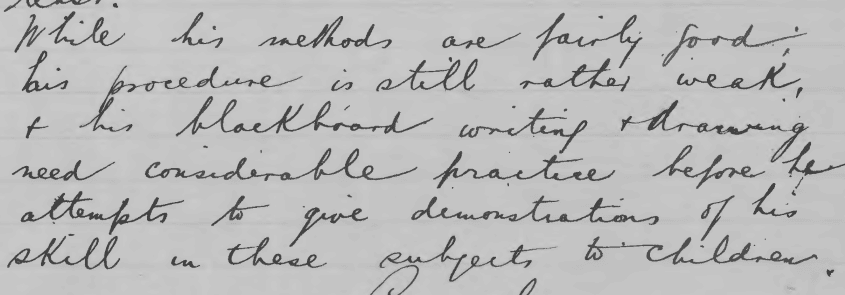 While his methods are fairly good;
his procedure is still rather weak,
& his blackboard writing & drawing
need considerable practice before he
attempts to give demonstrations of his
skill in these subjects to children.